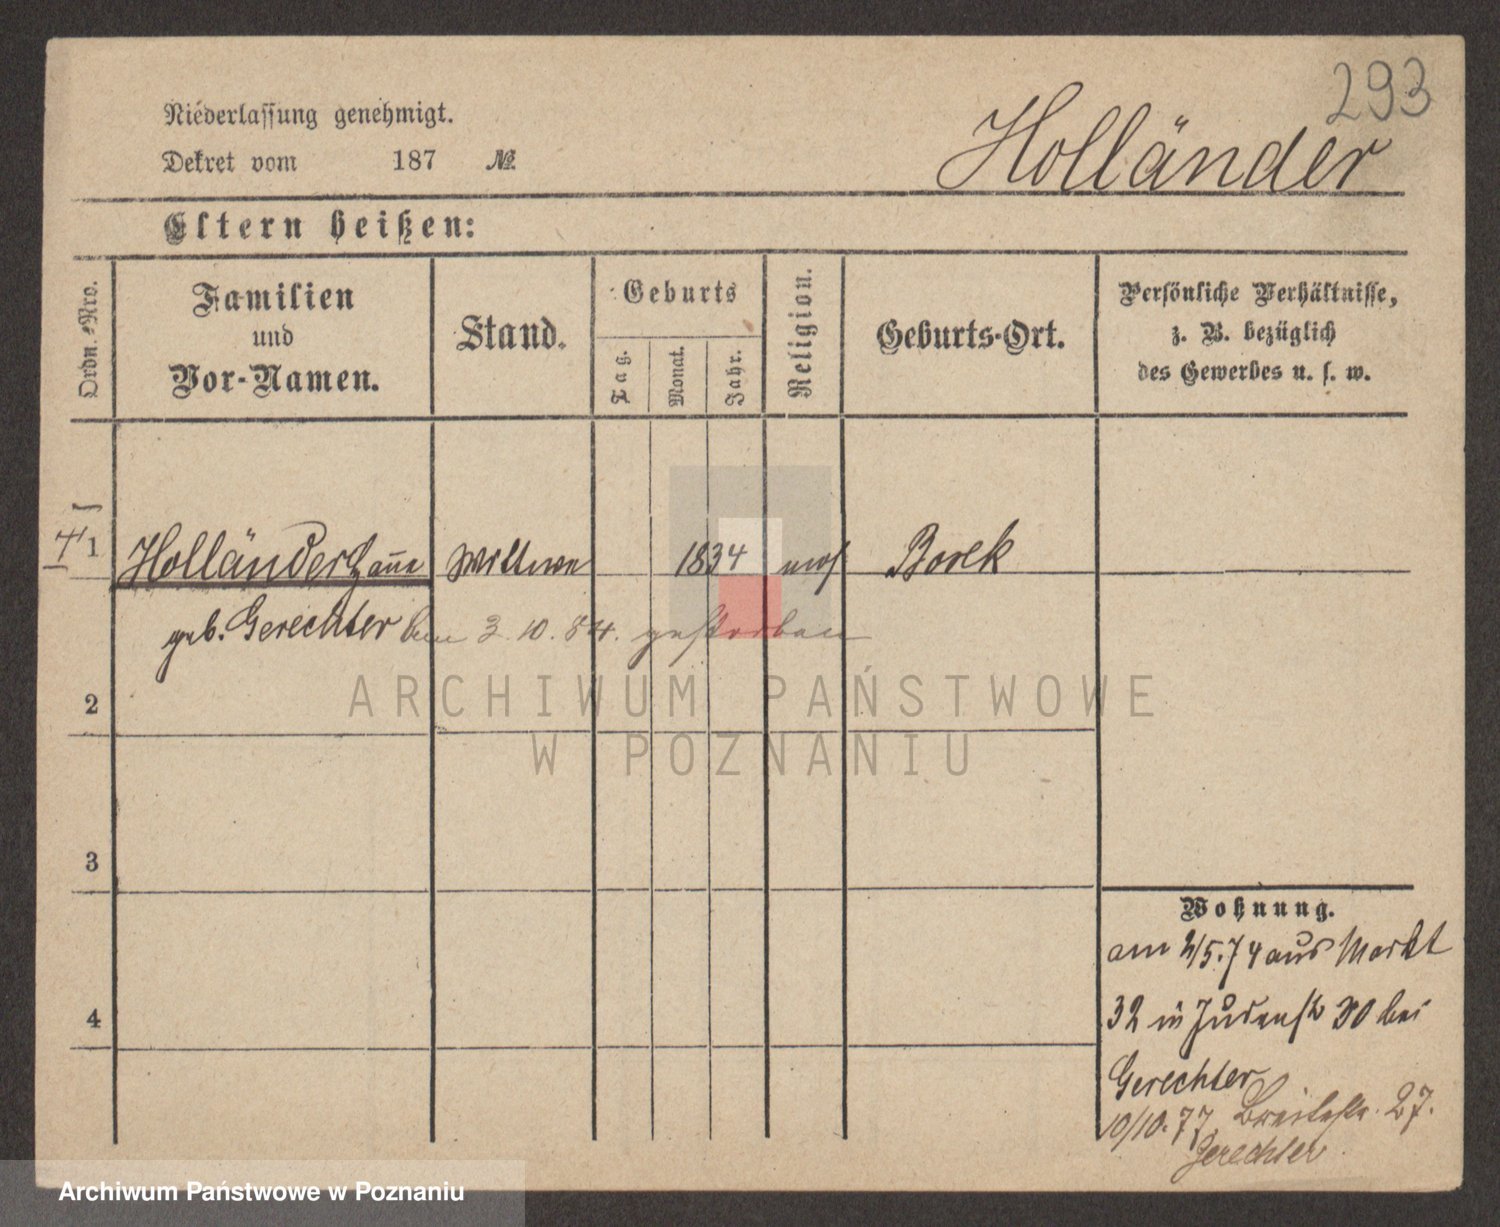 293
Niederlassung genehmigt.
Holländer
Dekret vom 187 №
Eltern heißen:
Ordn.-Nro.
Familien
und
Vor-Namen.
Stand.
Geburts
Tag.
Monat.
Jahr.
Religion.
Geburts-Ort.
Persönliche Verhältnisse,
z. B. bezüglich
des Gewerbes u. s. w.
1 Holländer Hanna Wittwe 1834 mos Borek
geb. Gerechter den 3. 10. 84. gestorben
ARCHIWUM PAŃSTWOWE
W POZNANIU
2
3
4
Wohnung.
am 2/5.74 aus Markt
32 in Judenstr 30 bei
Gerechter
10/10.77. Breitestr. 27.
Gerechter
Archiwum Państwowe w Poznaniu